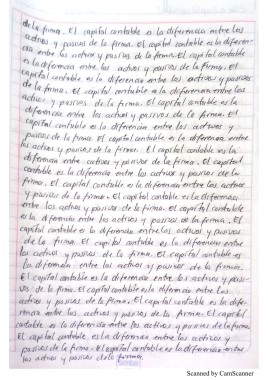 de la firma. El capital contable es la diferencia entre los
activos y pasivos de la firma. El capital contable es la diferen-
cia entre los activos y pasivos de la firma. El capital
capital contable es la diferencia entre los activos y pasivos
de la firma. El capital contable es la diferencia entre los
activos y pasivos de la firma. El capital contable es la
diferencia entre los activos y pasivos de la firma. El
capital contable es la diferencia entre los activos y
pasivos de la firma. El capital contable es la diferencia entre
los activos y pasivos de la firma. El capital contable es la
diferencia entre activos y pasivos de la firma. El capital
contable es la diferencia entre los activos y pasivos de la
firma. El capital contable es la diferencia entre los activos
y pasivos de la firma. El capital contable es la diferencia,
entre los activos y pasivos de la firma. El capital contable
es la diferencia entre los activos y pasivos de la firma. El
capital contable es la diferencia entre los activos y pasivos
de la firma. El capital contable es la diferencia entre
los activos y pasivos de la firma. El capital contable es
la diferencia entre los activos y pasivos de la firma.
El capital contable es la diferencia entre los activos y pasi-
vos de la firma. El capital contable es la diferencia entre los
activos y pasivos de la firma. El capital contable es la dife-
rencia entre los activos y pasivos de la firma. El capital
contable es la diferencia entre los activos y pasivos de la firma.
El capital contable es la diferencia entre los activos y
pasivos de la firma. El capital contable es la diferencia entre
los activos y pasivos de la firma.
Scanned by CamScanner